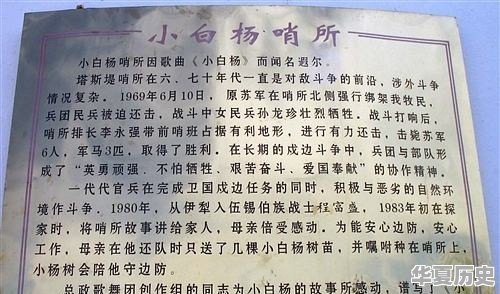 小白杨哨所
小白杨哨所因歌曲《小白杨》而闻名遐尔。
塔斯堤哨所在六、七十年代一直是对敌斗争的前沿，涉外斗争
情况复杂。1969年6月10日，原苏军在哨所北侧强行绑架我牧民，
兵团民兵被迫还击，战斗中女民兵孙龙珍壮烈牺牲。战斗打响后，
哨所排长李永强带前哨班占据有利地形，进行有力还击，击毙苏军
6人，军马3匹，取得了胜利。在长期的戍边斗争中，兵团与部队形
成了“英勇顽强、不怕牺牲、艰苦奋斗、爱国奉献”的协作精神。
一代代官兵在完成卫国戍边任务的同时，积极与恶劣的自然环
境作斗争。1980年，从伊犁入伍锡伯族战士程富盛，1983年初在探
家时，将哨所故事讲给家人，母亲倍受感动。为能安心边防，安心
工作，母亲在他还队时只送了几棵小杨树苗，并嘱咐种在哨所上，
小杨树会陪他守边防。
总政歌舞团创作组的同志为小白杨的故事所感动，谱写了《小
华夏历史